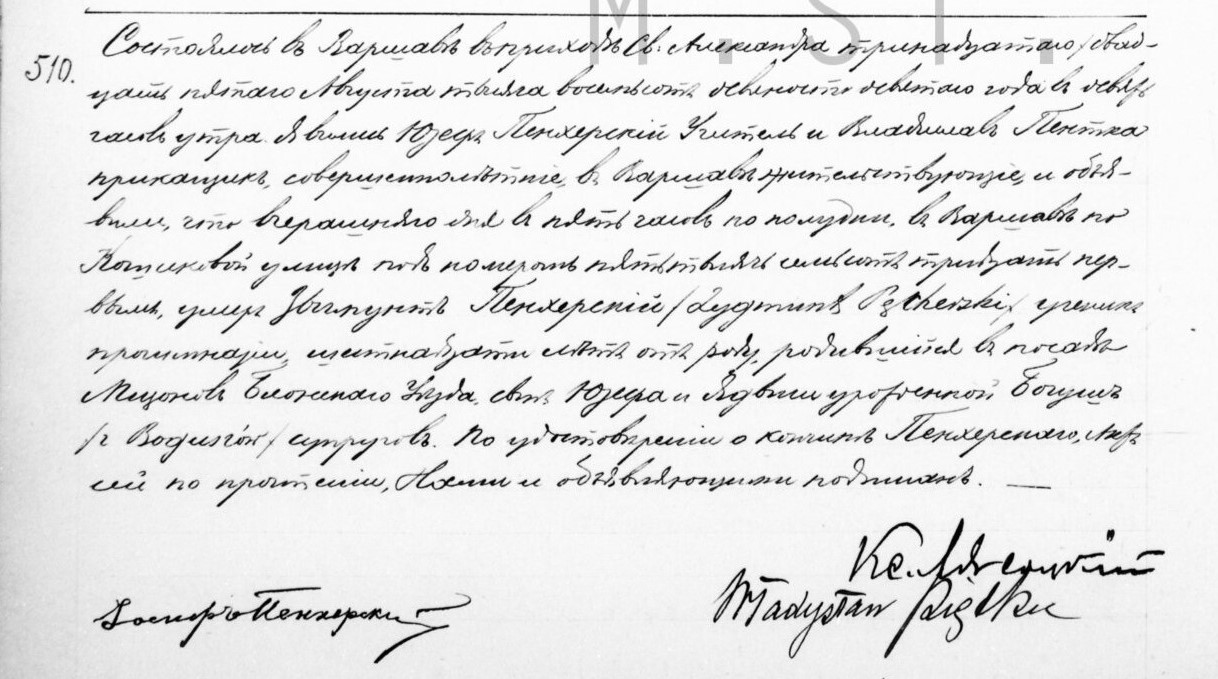 M.S.I.
510.
Состоялось въ Варшавѣ въ приходѣ Св. Александра тринадцатаго /двад-
цать пятаго Августа тысяча восемьсотъ девяносто девятаго года въ девять
часовъ утра. Явились Юзефъ Пенхерскій Учитель и Владиславъ Пентка
прикащикъ, совершеннолѣтніе, въ Варшавѣ жительствующіе, и объя-
вили, что вчерашняго дня въ пять часовъ по полудни, въ Варшавѣ по
Кошиковой улицѣ подъ номеромъ пять тысячъ семьсотъ тридцать пер-
вымъ, умеръ Зыгмунтъ Пенхерскій /Zygmunt Pęcherski/ ученикъ
прогимназіи, шестнадцати лѣтъ отъ роду, родившійся въ посадѣ
Мщоновъ Блонскаго Уѣзда, сынъ Юзефа и Ядвиги урожденной Богушъ
/z Boguszów/ супруговъ. По удостовѣреніи о кончинѣ Пенхерскаго, Актъ
сей по прочтеніи, Нами и объявляющими подписанъ. —
Кс.
Іосифъ Пенхерскій
Władysław Piętka